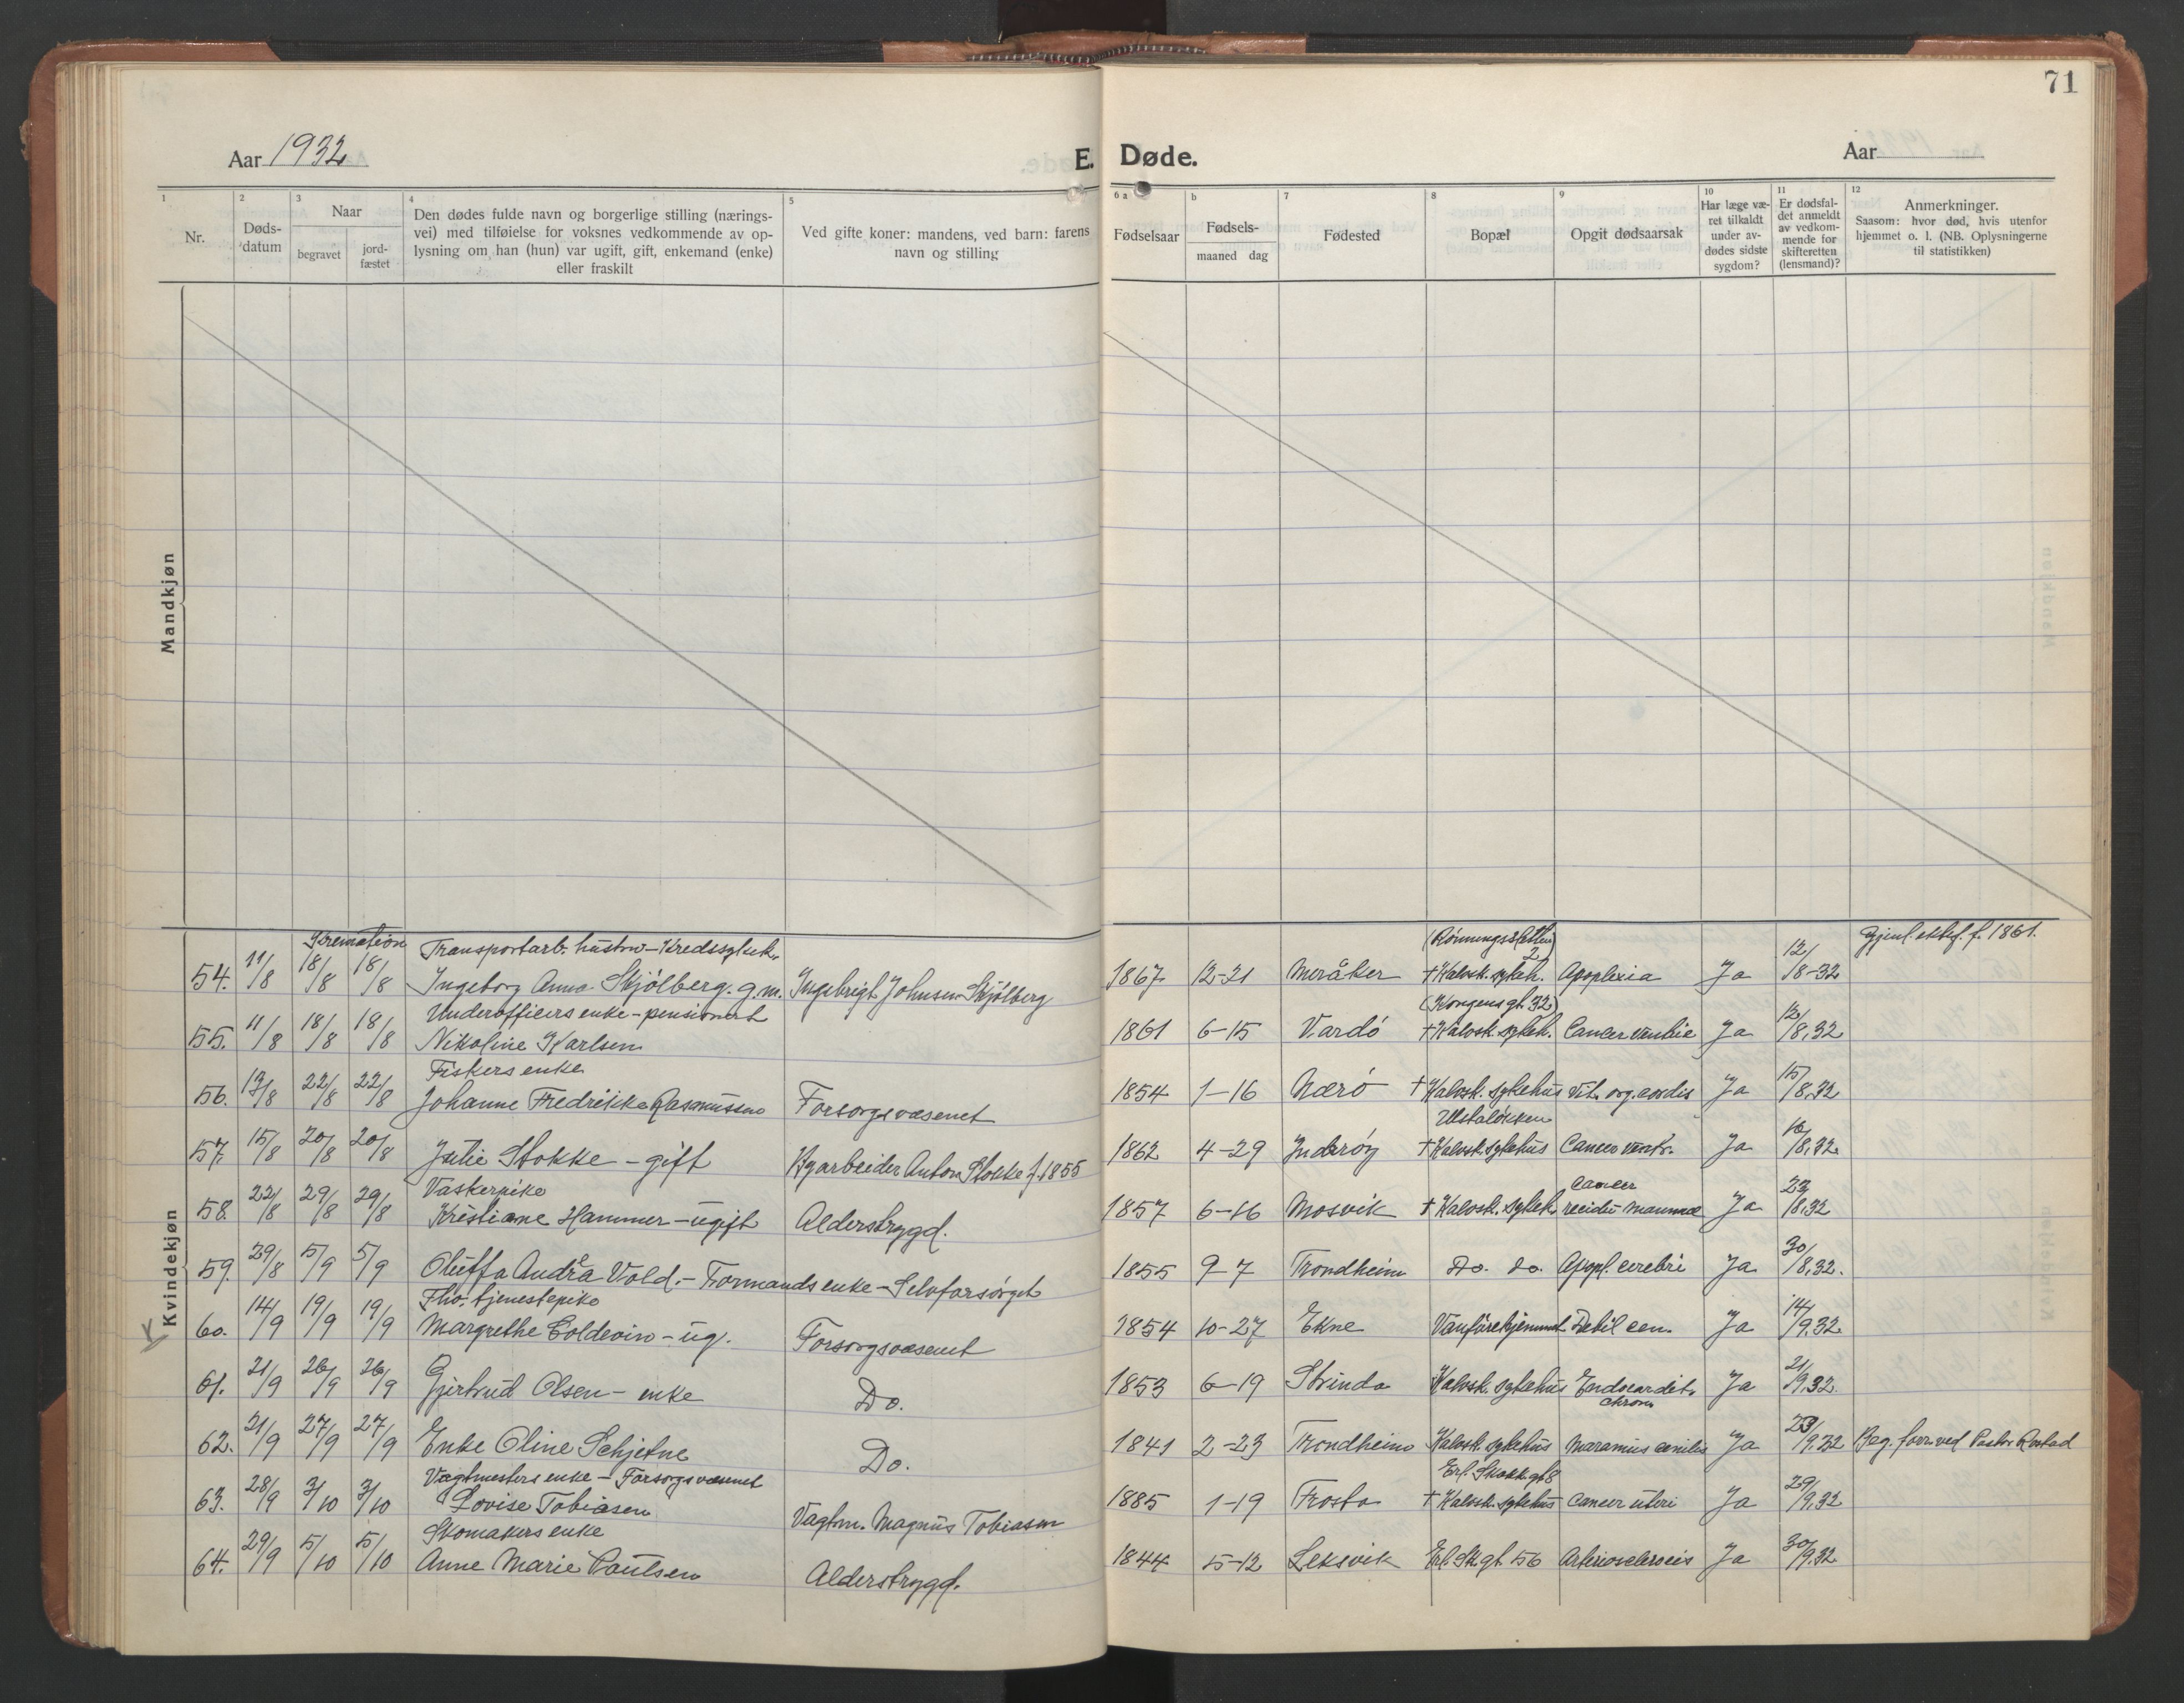 71
Aar 1932
E. Døde.
Aar
1 2 3 4 5 6 a b 7 8 9 10 11 12
Nr.
Døds-
datum
Naar
begravet
jord-
fæstet
Den dødes fulde navn og borgerlige stilling (nærings-
vei) med tilføielse for voksnes vedkommende av op-
lysning om han (hun) var ugift, gift, enkemand (enke)
eller fraskilt
Ved gifte koner: mandens, ved barn: farens
navn og stilling
Fødselsaar
Fødsels-
maaned dag
Fødested
Bopæl
Opgit dødsaarsak
Har læge væ-
ret tilkaldt
under av-
dødes sidste
sygdom?
Er dødsfal-
det anmeldt
av vedkom-
mende for
skifteretten
(lensmand)?
Anmerkninger.
Saasom: hvor død, hvis utenfor
hjemmet o. l. (NB. Oplysningerne
til statistikken)
Mandkjøn
Kvindekjøn
Kremation Transportarb. hustru - Kredssykek. (Rønningsletten 2) Gjenl. ektef. f. 1861.
54. 11/8 18/8 18/8 Ingeborg Anna Skjølberg. g.m. Ingebrigt Johnsen Skjølberg 1867 12-21 Meråker † Kalvsk. sykeh. Apoplexia Ja 12/8-32
Underofficers enke - pensionert (Kongens gt. 32)
55. 11/8 18/8 18/8 Nikoline Karlsen 1861 6-15 Vardø † Kalvsk. sykeh. Cancer Ja 12/8.32
Fiskers enke
56. 13/8 22/8 22/8 Johanne Fredrikke Rasmussen Forsorgsvæsenet 1854 1-16 Nærø † Kalvsk. sykehus Vit. org. cordis Ja 15/8.32
57. 15/8 20/8 20/8 Julie Stokke - gift Byarbeider Anton Stokke f. 1855 1862 4-29 Inderøy † Kalvsk. sykehus Cancer ventr. Ja 16/8.32
Vaskerpike Cancer
58. 22/8 29/8 29/8 Kristiane Hammer - ugift Alderstrygd. 1857 6-16 Mosvik † Kalvsk. sykeh. recidiv mammae Ja 23/8.32
59. 29/8 5/9 5/9 Oluffa Andrea Vold. - Formands enke - Selvforsørget 1855 9-7 Trondheim Do. do. Apopl. cerebri Ja 30/8.32.
Fhv. tjenestepike
60. 14/9 19/9 19/9 Margrethe Coldevin - ug. Forsorgsvæsenet 1854 10-27 Ekne Vanførehjemmet Debil sen. Ja 14/9.32
61. 21/9 26/9 26/9 Gjertrud Olsen - enke Do. 1853 6-19 Strinda Kalvsk. sykehus Endocardit. chron. Ja 21/9.32.
62. 21/9 27/9 27/9 Enke Oline Schjetne Do. 1841 2-23 Trondheim Kalvsk. sykehus Marasmus senilis Ja 23/9.32 Beg. forr. ved Pastor Rostad
Vagtmesters enke - Forsorgsvæsenet Erl. Skakk gt 8
63. 28/9 3/10 3/10 Lovise Tobiasen Vagtm. Magnus Tobiasen 1885 1-19 Frosta † Kalvsk. sykehus Cancer uteri Ja 29/9.32
Skomakers enke
64. 29/9 5/10 5/10 Anne Marie Paulsen Alderstrygd. 1844 5-12 Leksvik Erl. Sk. gt 56 Arteriosclerosis Ja 30/9.32